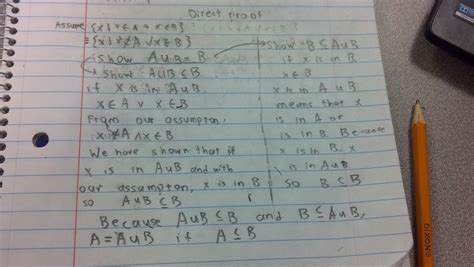 Direct proof
Assume {x | x ∈ A → x ∈ B}
≡ {x | x ∉ A ∨ x ∈ B}
Show A∪B = B
Show A∪B ⊆ B
if x is in A∪B,
x ∈ A ∨ x ∈ B
From our assumption,
x ∉ A ∧ x ∈ B
We have shown that if
x is in A∪B and with
our assumption, x is in B
so A∪B ⊆ B
Show B ⊆ A∪B
if x is in B
x ∈ B
x is in A∪B
means that x
is in A or
is in B. Because
x is in B, x
is in A∪B
so B ⊆ B
Because A∪B ⊆ B and B ⊆ A∪B,
A = A∪B if A ⊆ B
NOXIO